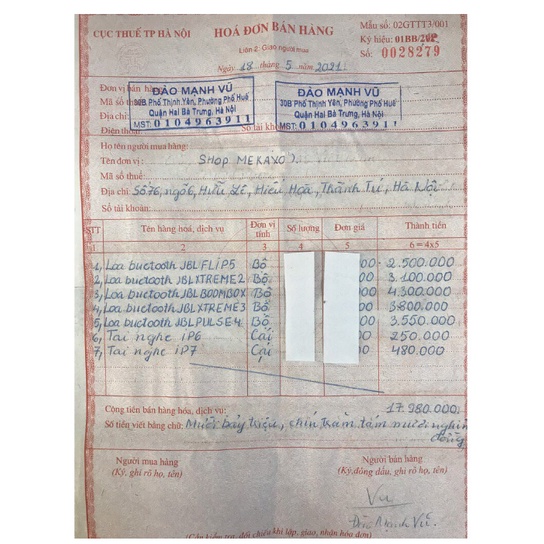 CỤC THUẾ TP HÀ NỘI
HOÁ ĐƠN BÁN HÀNG
Liên 2: Giao người mua
Ngày 18 tháng 5 năm 2021
Mẫu số: 02GTTT3/001
Ký hiệu: 01BB/20P
Số: 0028279
Đơn vị bán hàng
Mã số thuế
Địa chỉ
Điện thoại
Số tài khoản
ĐÀO MẠNH VŨ
30B Phố Thịnh Yên, Phường Phố Huế
Quận Hai Bà Trưng, Hà Nội
MST: 0104963911
ĐÀO MẠNH VŨ
30B Phố Thịnh Yên, Phường Phố Huế
Quận Hai Bà Trưng, Hà Nội
MST: 0104963911
Họ tên người mua hàng:
Tên đơn vị: SHOP MEKAXO
Mã số thuế:
Địa chỉ Số 76, ngõ 6, Hữu Lê, Hữu Hoà, Thanh Trì, Hà Nội
Số tài khoản:
STT Tên hàng hoá, dịch vụ Đơn vị tính Số lượng Đơn giá Thành tiền
1 2 3 4 5 6 = 4x5
1, Loa buetooth JBL FLIP5 Bộ 00- 2.500.000
2, Loa buctooth JBL XTREME2 Bộ 00- 3.100.000
3, Loa buctooth JBL BOOMBOX Bộ 00- 4.300.000
4, Loa buctooth JBL XTREME3 Bộ 00- 3.800.000
5, Loa buctooth JBL PULSE4 Bộ 00- 3.550.000
6, Tai nghe iP6 Cái 00- 250.000
7, Tai nghe iP7 Cái 00- 480.000
Cộng tiền bán hàng hóa, dịch vụ: 17.980.000
Số tiền viết bằng chữ: Mười bảy triệu, chín trăm tám mươi nghìn đồng
Người mua hàng
(Ký, ghi rõ họ, tên)
Người bán hàng
(Ký, đóng dấu, ghi rõ họ, tên)
Vũ
Đào Mạnh Vũ
(Cần kiểm tra, đối chiếu khi lập, giao, nhận hóa đơn)